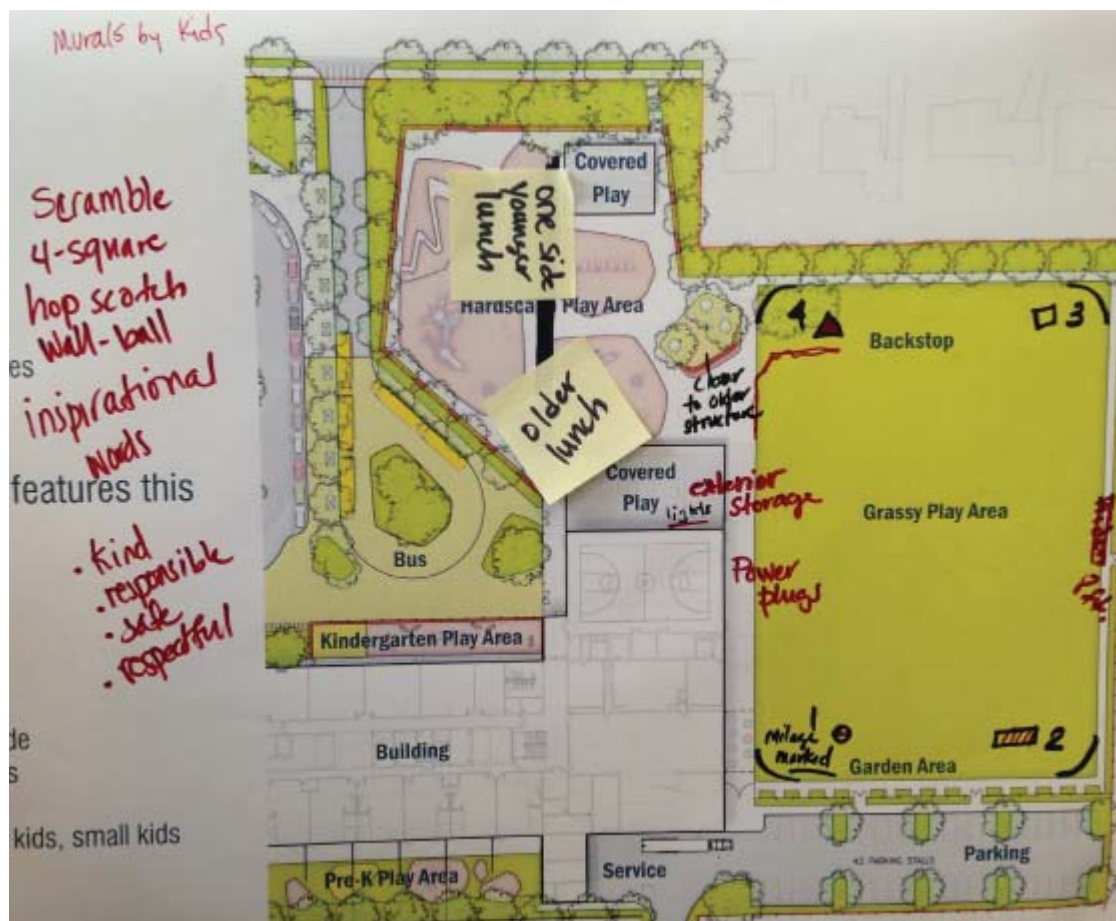 Murals by Kids
Scramble
4-square
hop scotch
Wall-ball
inspirational
words
es
features this
• Kind
• responsible
• safe
• respectful
de
s
kids, small kids
Covered
Play
one side
younger
lunch
Hardsca Play Area
older
lunch
closer
to older
structure
4
3
Backstop
Covered
Play
lights
exterior
storage
Grassy Play Area
Power
plugs
Bus
Kindergarten Play Area
Building
1
Mileage
marked
2
Garden Area
Pre-K Play Area
Service
42 PARKING STALLS
Parking